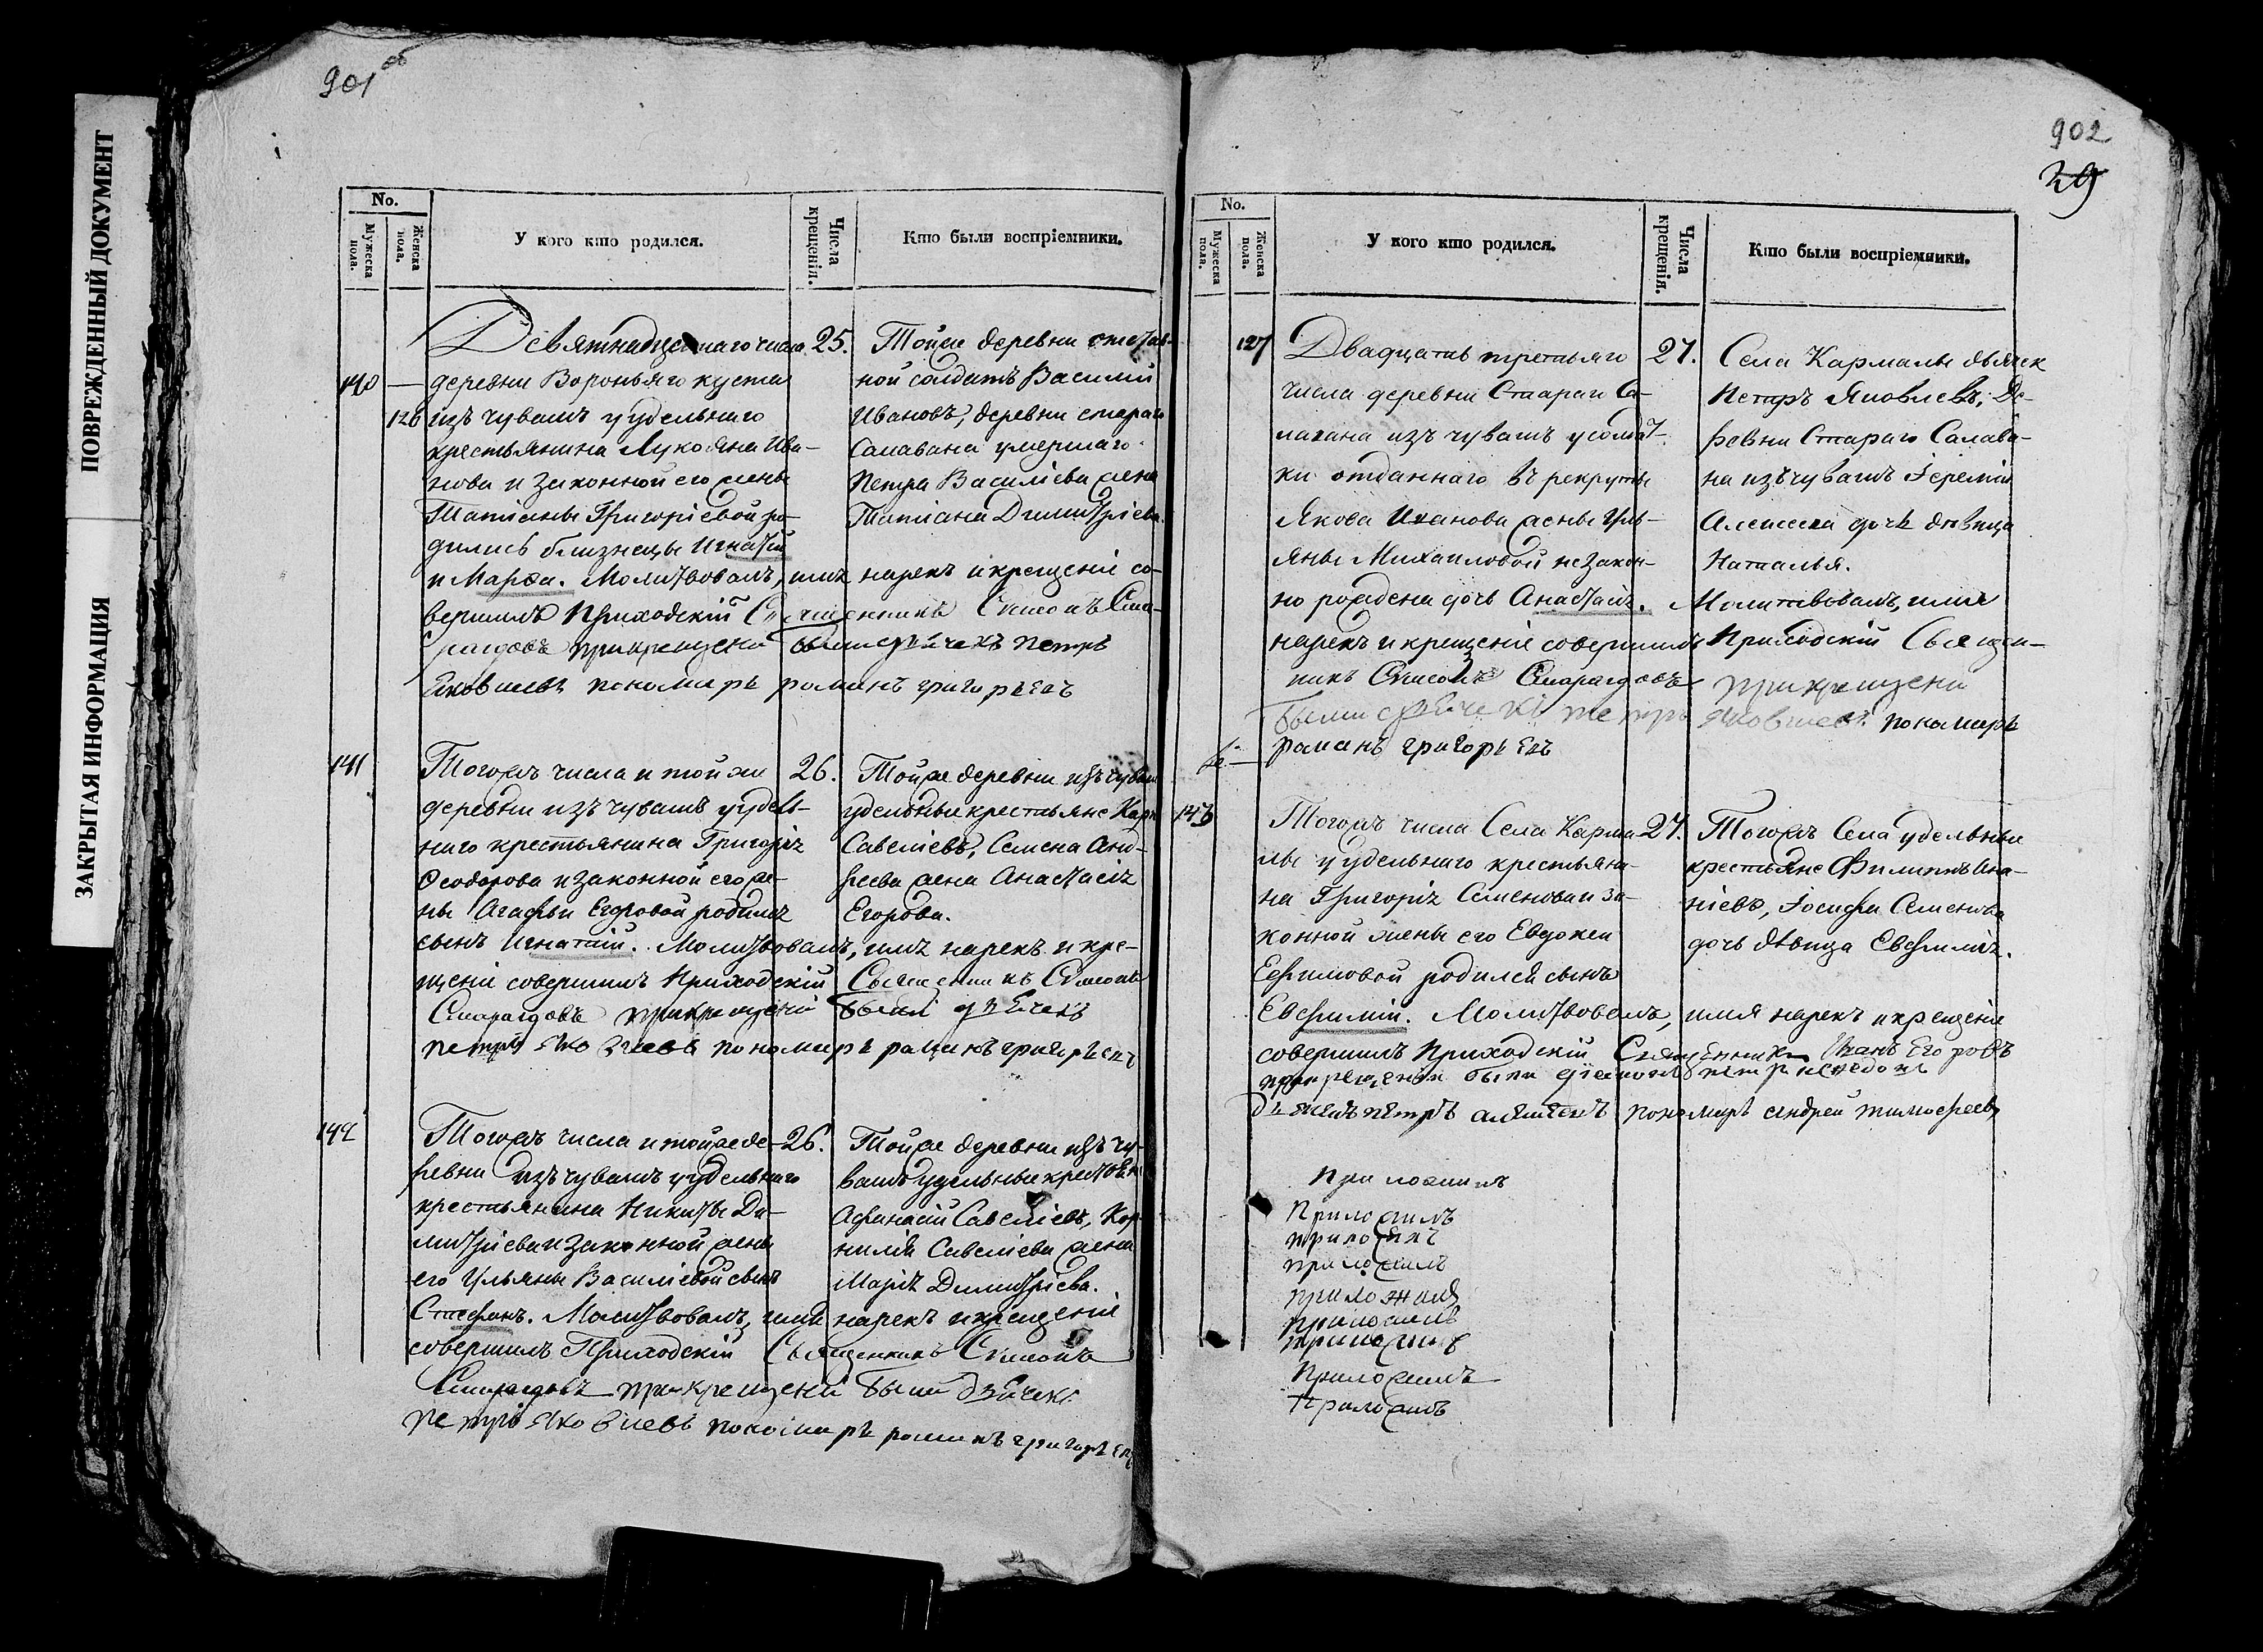 ПОВРЕЖДЕННЫЙ ДОКУМЕНТ
ЗАКРЫТАЯ ИНФОРМАЦИЯ
901 об
No.
Мужеска пола.
Женска пола.
У кого кто родился.
Числа крещенія.
Кто были воспріемники.
140
126
Девятнадцатаго числа
деревни Вороньяго куста
изъ чувашъ у удельнаго
крестьянина Лукояна Ива-
нова и законной его жены
Татіаны Григоріевой ро-
дились близнецы Игнатій
и Марѳа. Молитвовалъ, имя нарекъ и крещеніе со-
вершилъ Приходскій Священникъ Симонъ Сма-
рагдовъ при крещеніи были дьячекъ петръ
Яковлевъ пономарь романъ григорьевъ
25.
Тойже деревни отстав-
ной солдатъ Василій
Ивановъ, деревни стараго
Салавана умершаго
Петра Василіева жена
Татіана Димитріева.
141
Тогожъ числа и той же
деревни изъ чувашъ у удель-
наго крестьянина Григорія
Ѳеодорова и законной его же-
ны Агафьи Егоровой родился
сынъ Игнатій. Молитвовалъ, имя нарекъ и кре-
щеніе совершилъ Приходскій Священникъ Симонъ
Смарагдовъ при крещеніи были дьячекъ
петръ Яковлевъ пономарь романъ григорьевъ
26.
Тойже деревни изъ чувашъ
удельные крестьяне
Савеліевъ, Семена Анд-
реева жена Анастасія
Егорова.
142
Тогожъ числа и тойже де-
ревни изъ чувашъ у удельнаго
крестьянина Никиты Ди-
митріева и законной жены
его Ульяны Василіевой сынъ
Стефанъ. Молитвовалъ, имя нарекъ и крещеніе
совершилъ Приходскій Священникъ Симонъ
Смарагдовъ при крещеніи были дьячекъ
петръ Яковлевъ пономарь романъ григорьевъ
26.
Тойже деревни изъ чу-
вашъ удельные крестьяне
Афанасій Савеліевъ, Кор-
нилія Савеліева жена
Марія Димитріева.
902
29
No.
Мужеска пола.
Женска пола.
У кого кто родился.
Числа крещенія.
Кто были воспріемники.
127
Двадцать третьяго
числа деревни Стараго Са-
лавана изъ чувашъ у солдат-
ки отданнаго въ рекруты
Якова Иванова жены Уль-
яны Михаиловой незакон-
но рождена дочь Анастасія. Молитвовалъ, имя
нарекъ и крещеніе совершилъ Приходскій Священ-
никъ Симонъ Смарагдовъ при крещении
были дьячекъ петръ Яковлевъ пономарь
романъ григорьевъ
27.
Села Кармалы дьячек
Петръ Яковлевъ, Де-
ревни Стараго Салава-
на изъ чувашъ Іереміи
Алексеева дочь девица
Наталья.
143
Тогожъ числа Села Карма-
лы у удельнаго крестьяни-
на Григорія Семенова и за-
конной жены его Евдокеи
Ефимовой родился сынъ
Евфимій. Молитвовалъ, имя нарекъ и крещеніе
совершилъ Приходскій Священникъ Иванъ Егоровъ
при крещеніи были діаконъ петръ
дьячекъ петръ пономарь андрей тимофеевъ
27.
Тогожъ Села удельные
крестьяне Филиппъ Ана-
ніевъ, Іосифа Семенова
дочь девица Евфимія.
Приложилъ
Приложилъ
приложилъ
приложилъ
приложилъ
приложилъ
приложилъ
Приложилъ
Приложилъ